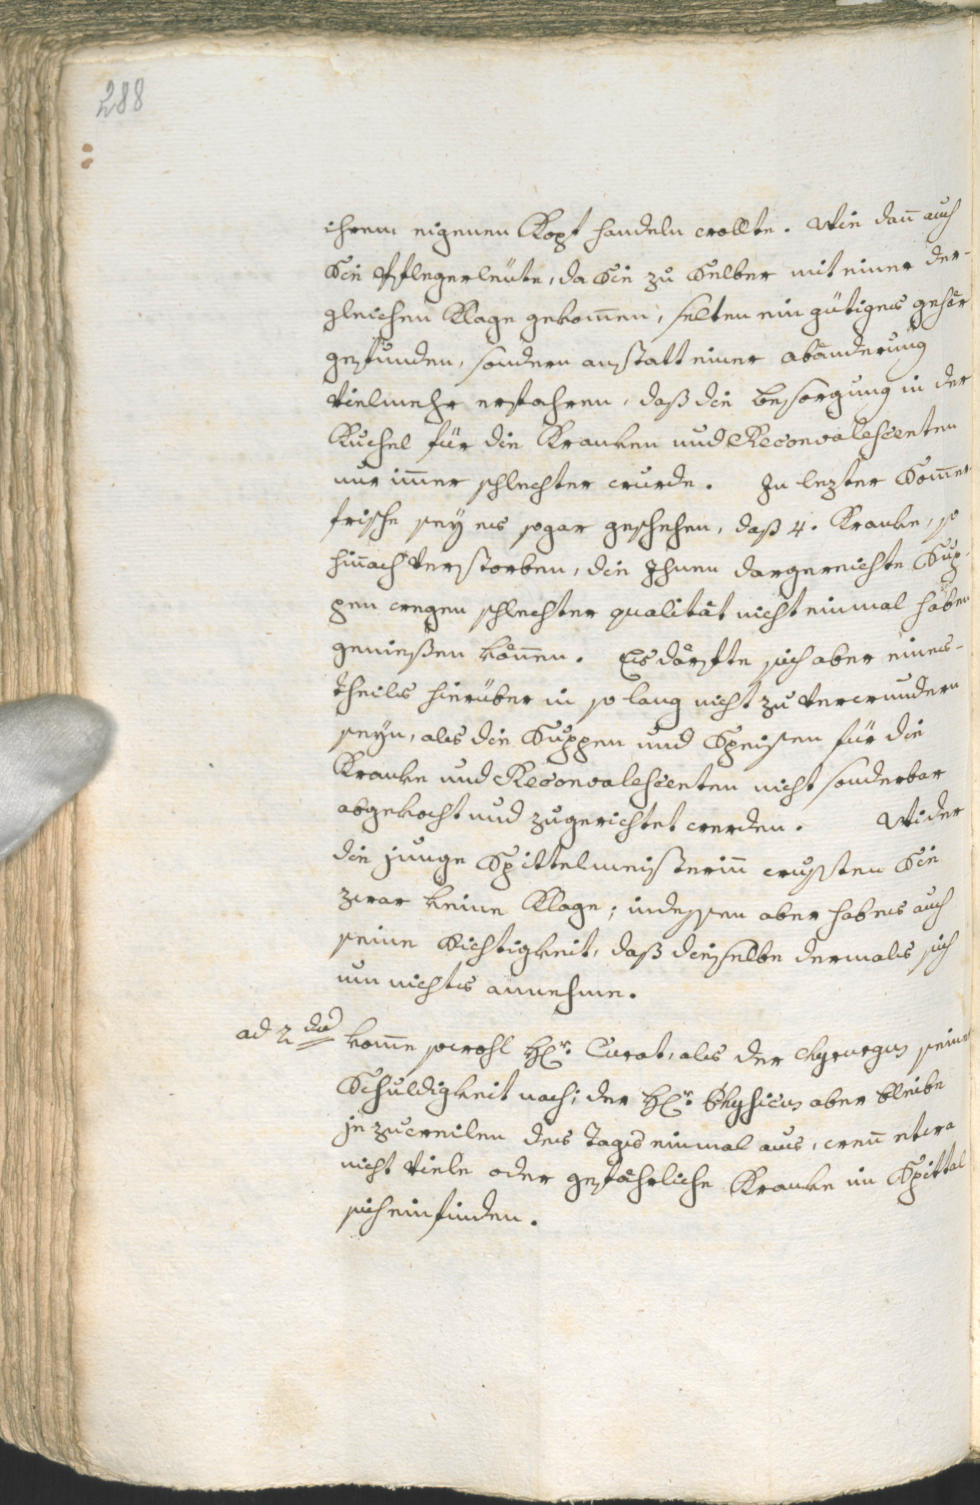 288
ihrem eigenen Kopf handeln wollte. Wie dañ auch
Sie Pflegerleüte, da Sie zu Selber mit einer der-
gleichen Klage gekom̃en, selten ein gütiges gehör
gefunden, sondern anstatt einer abänderung
vielmehr erfahren, daß die besorgung in der
Kuchel für die Kranken und Reconvalescenten
nur im̃er schlechter wurde. In lezter Som̃er
frische seÿ es sogar geschehen, daß 4. Kranke, so
hin̄ach verstorben, die Ihnen dargereichte Sup-
pen wegen schlechter qualität nicht einmal haben
genießen können. Es dörfte sich aber eines-
theils hierüber in so lang nicht zu verwundern
seyn, als die Suppen und Speisen für die
Kranke und Reconvalescenten nicht sonderbar
abgekocht und zugerichtet werden. Wider
die junge Spittelmeisterin̄ wussten Sie
zwar keine Klage; indessen aber habe es auch
seine Richtigkeit, daß dieselbe dermals sich
um nichts annehme.
ad 2do kom̃e sowohl Hr. Curat, als der Chyrurgus seiner
Schuldigkeit nach; der Hr. Physicus aber bleibe
je zuweilen des Tags einmal aus, wen̄ etwa
nicht viele oder gefährliche Kranke im Spittal
sich einfinden.